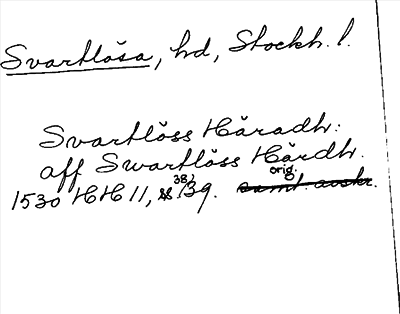 Svartlösa, hd, Stockh. l.
Svartlöss Häradh:
aff Swartlöss Härdh.
orig.
1530 HH 11, 38, 139. samt. avskr.